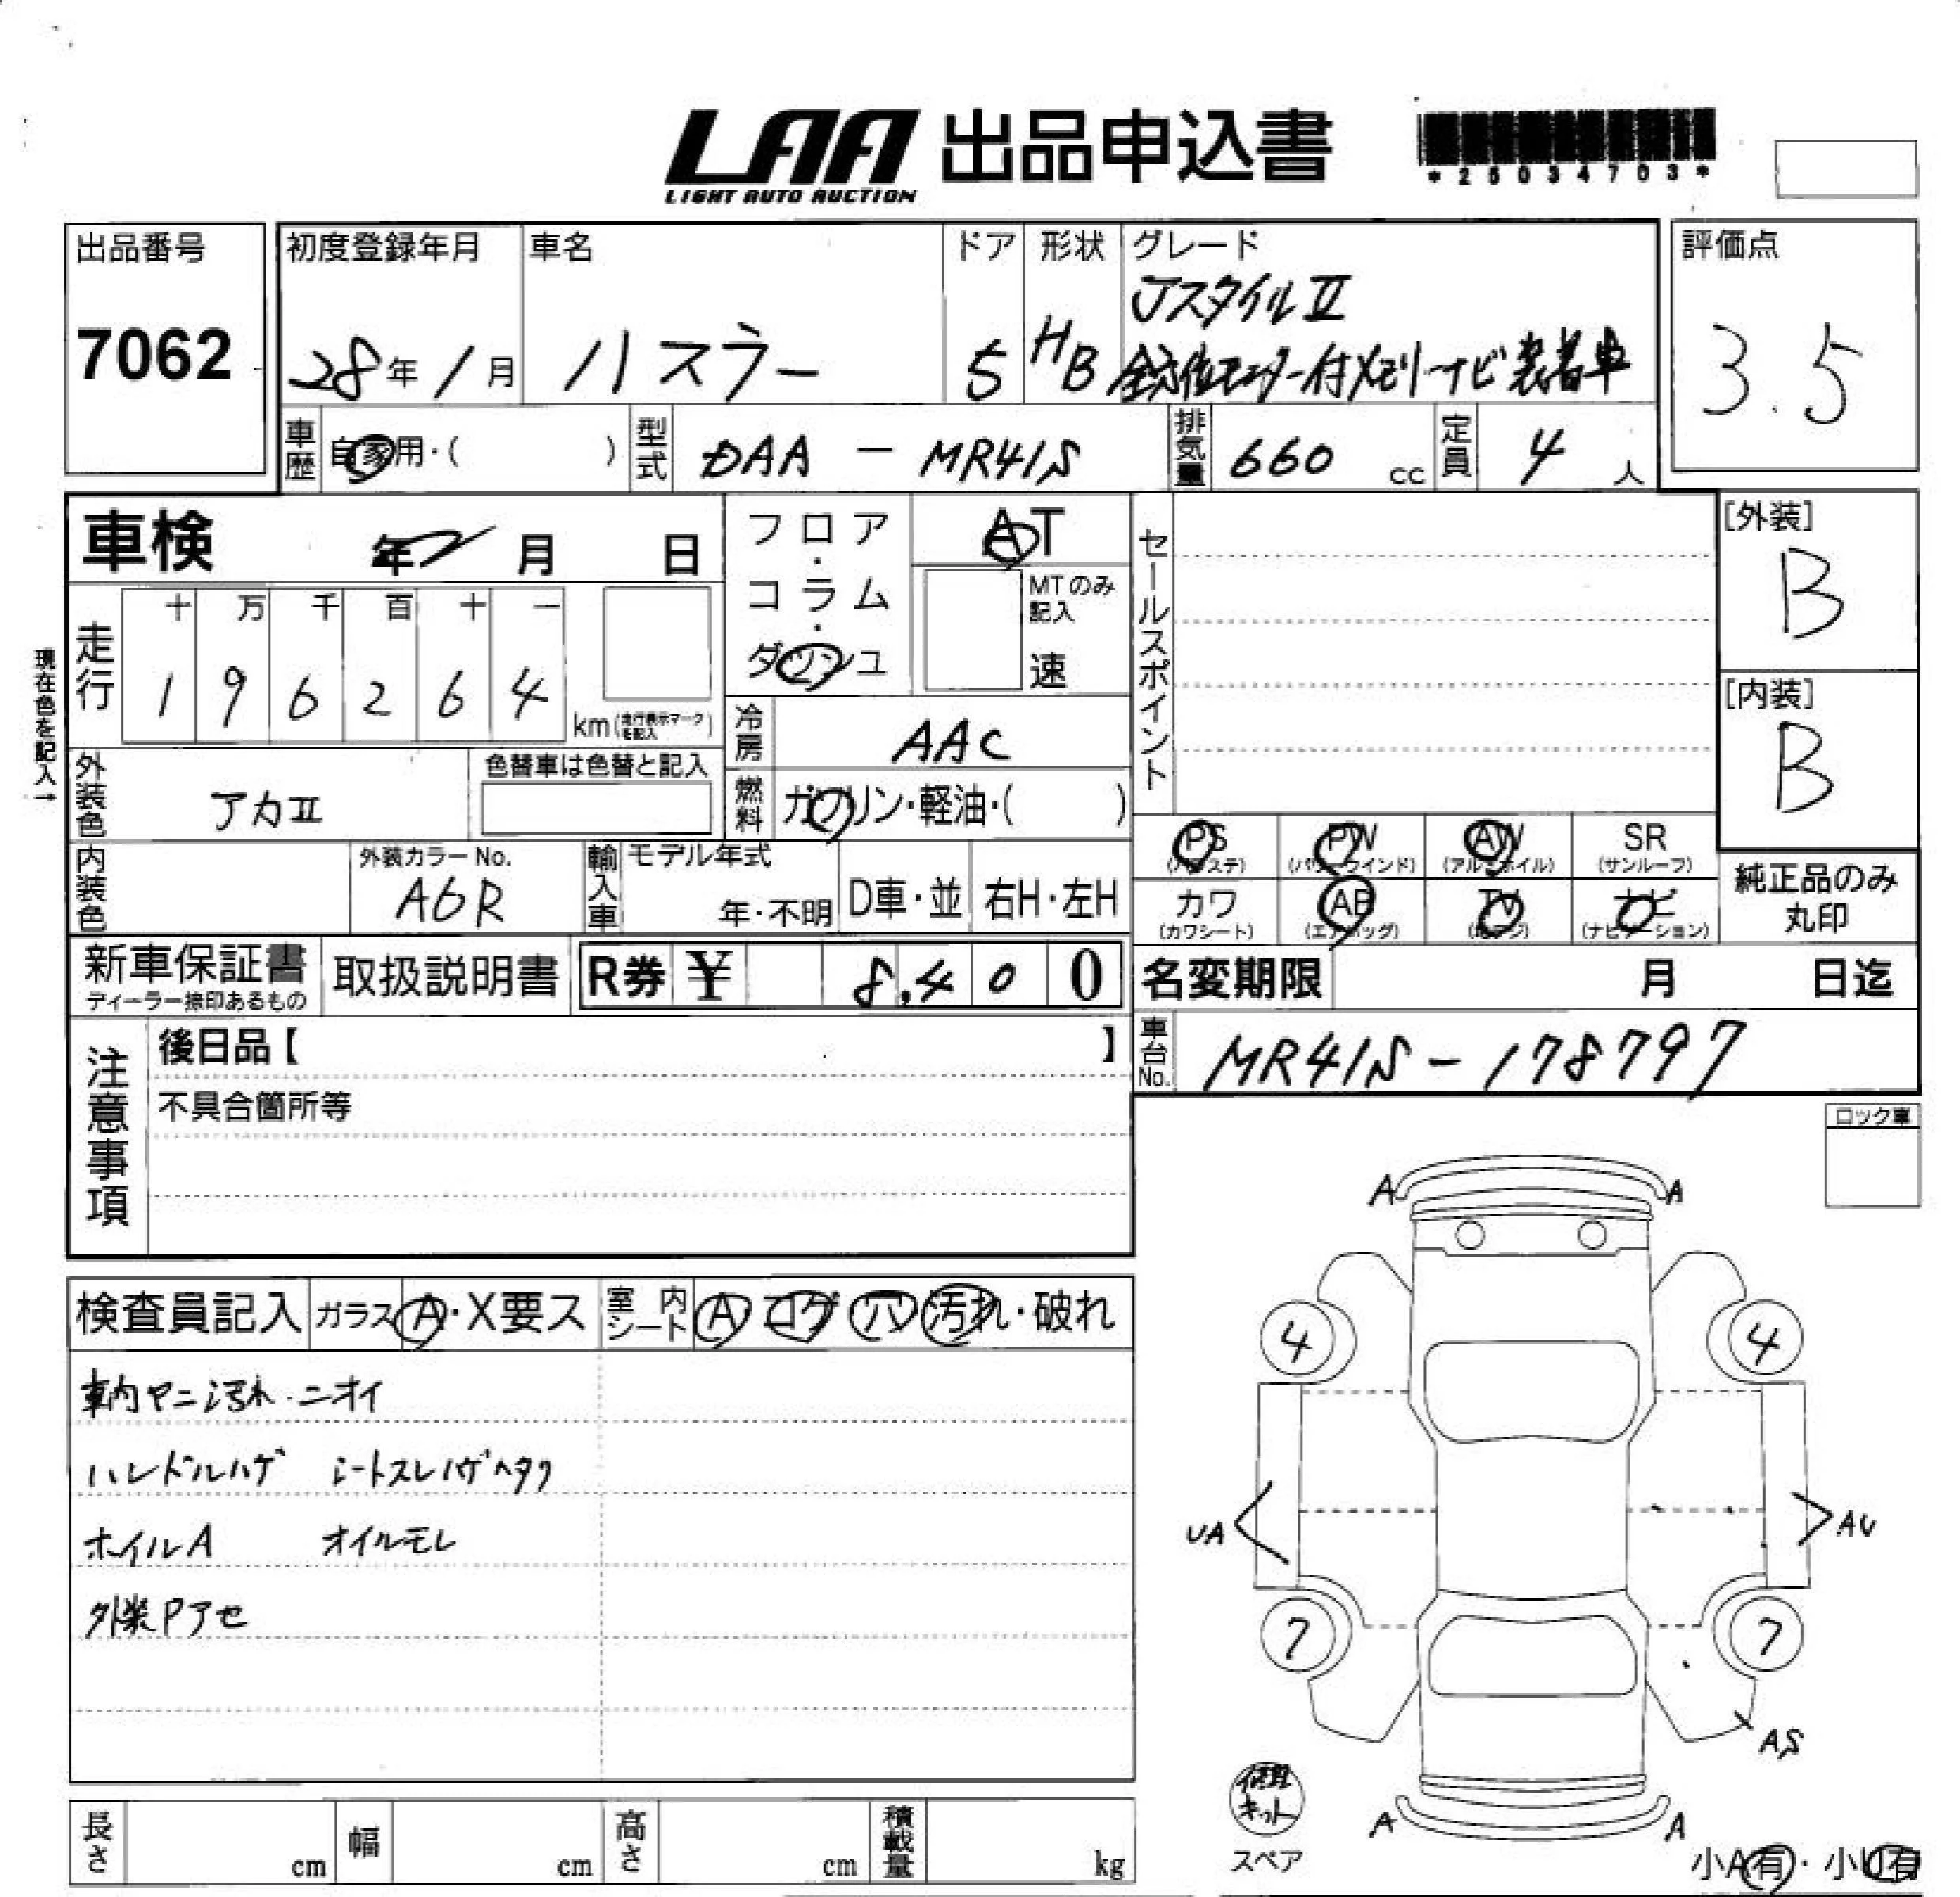 LAA 出品申込書
LIGHT AUTO AUCTION
*25034703*
出品番号 初度登録年月 車名 ドア 形状 グレード 評価点
7062 28年1月 ハスラー 5 HB JスタイルⅡ 3.5
全方位モニター付メモリーナビ装着車
車歴 自家用・( ) 型式 DAA - MR41S 排気量 660 cc 定員 4 人
車検 年 月 日
フロア・コラム・ダッシュ
AT
MTのみ記入
速
セールスポイント
[外装]
B
[内装]
B
現在色を記入→
走行 十 万 千 百 十 一
1 9 6 2 6 4 km(走行表示マークを記入)
冷房 AAC
外装色 アカⅡ
色替車は色替と記入
燃料 ガソリン・軽油・( )
PS (パワステ) PW (パワーウインド) AW (アルミホイル) SR (サンルーフ)
カワ (カワシート) AB (エアバッグ) TV (地デジ) ナビ (ナビゲーション)
純正品のみ丸印
内装色
外装カラーNo. A6R
輸入車 モデル年式 年・不明 D車・並 右H・左H
新車保証書 ディーラー捺印あるもの 取扱説明書 R券 ¥ 8,400
名変期限 月 日迄
車台No. MR41S-178797
注意事項
後日品【 】
不具合箇所等
ロック車
検査員記入 ガラス A・X要ス 室内シート A・コゲ・穴・汚れ・破れ
車内ヤニ汚れ・ニオイ
ハンドルハゲ シートスレハゲヘタリ
ホイルA オイルモレ
外装Pアセ
A A
4 4
UA AU
7 7
AS
A A
修理キット
スペア
小A有・小U有
長さ cm 幅 cm 高さ cm 積載量 kg